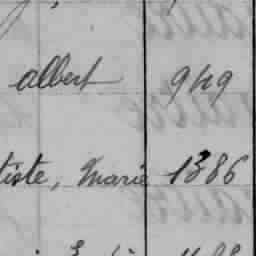 albert 949
tiste, Marie 1386